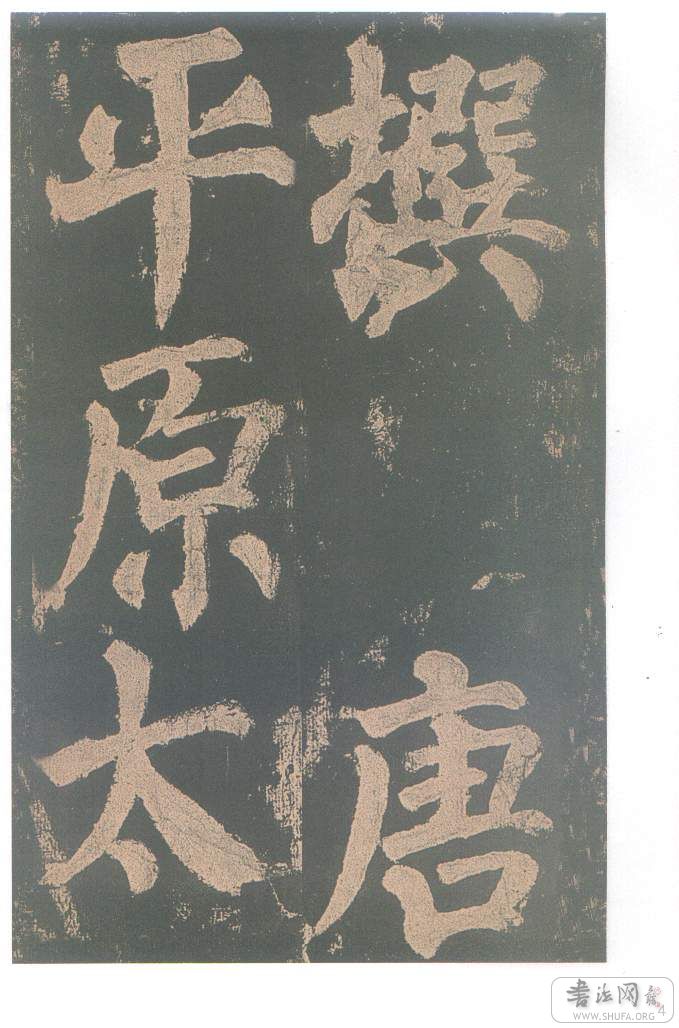 撰 唐
平原太
書法网
WWW.SHUFA.ORG
4